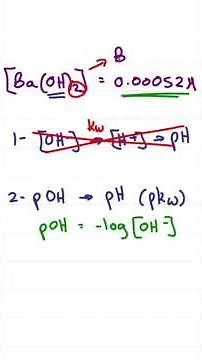 B
[Ba(OH)₂] = 0.00052M
Kw
1- [OH⁻] → [H⁺] → pH
2- pOH → pH (pKw)
pOH = -log[OH⁻]